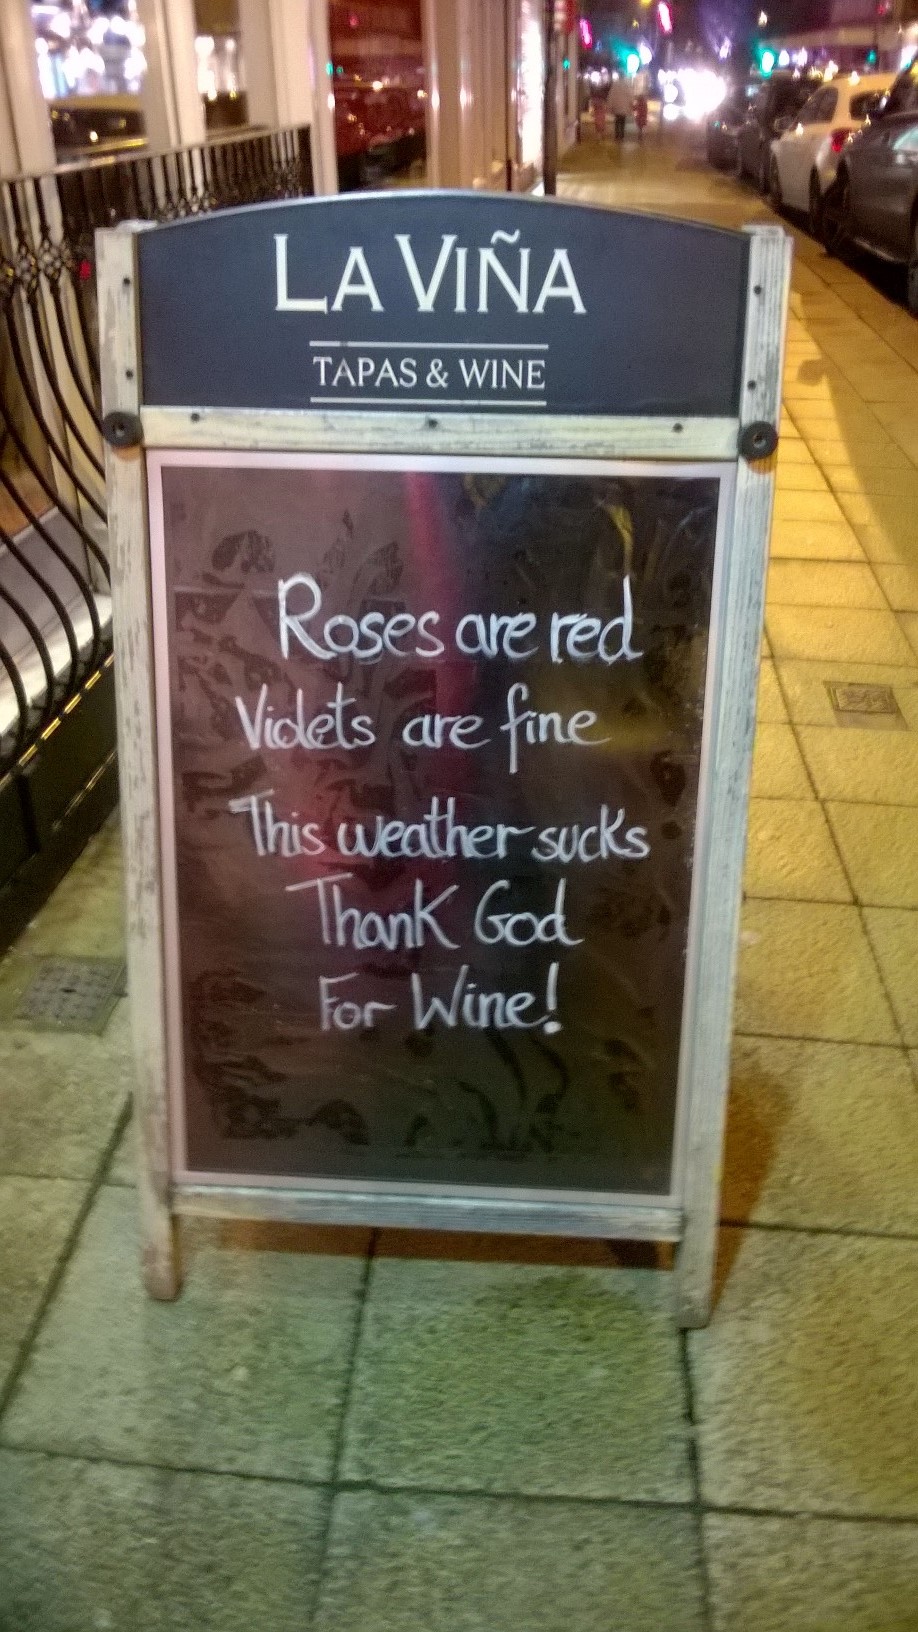 LA VIÑA
TAPAS & WINE
Roses are red
Violets are fine
This weather sucks
Thank God
For Wine!